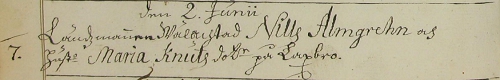 den 2 Junii
Ländzmannen Wälacstad Nills Almgrehn as
7. Maria Knuts dotr på Laxbro.